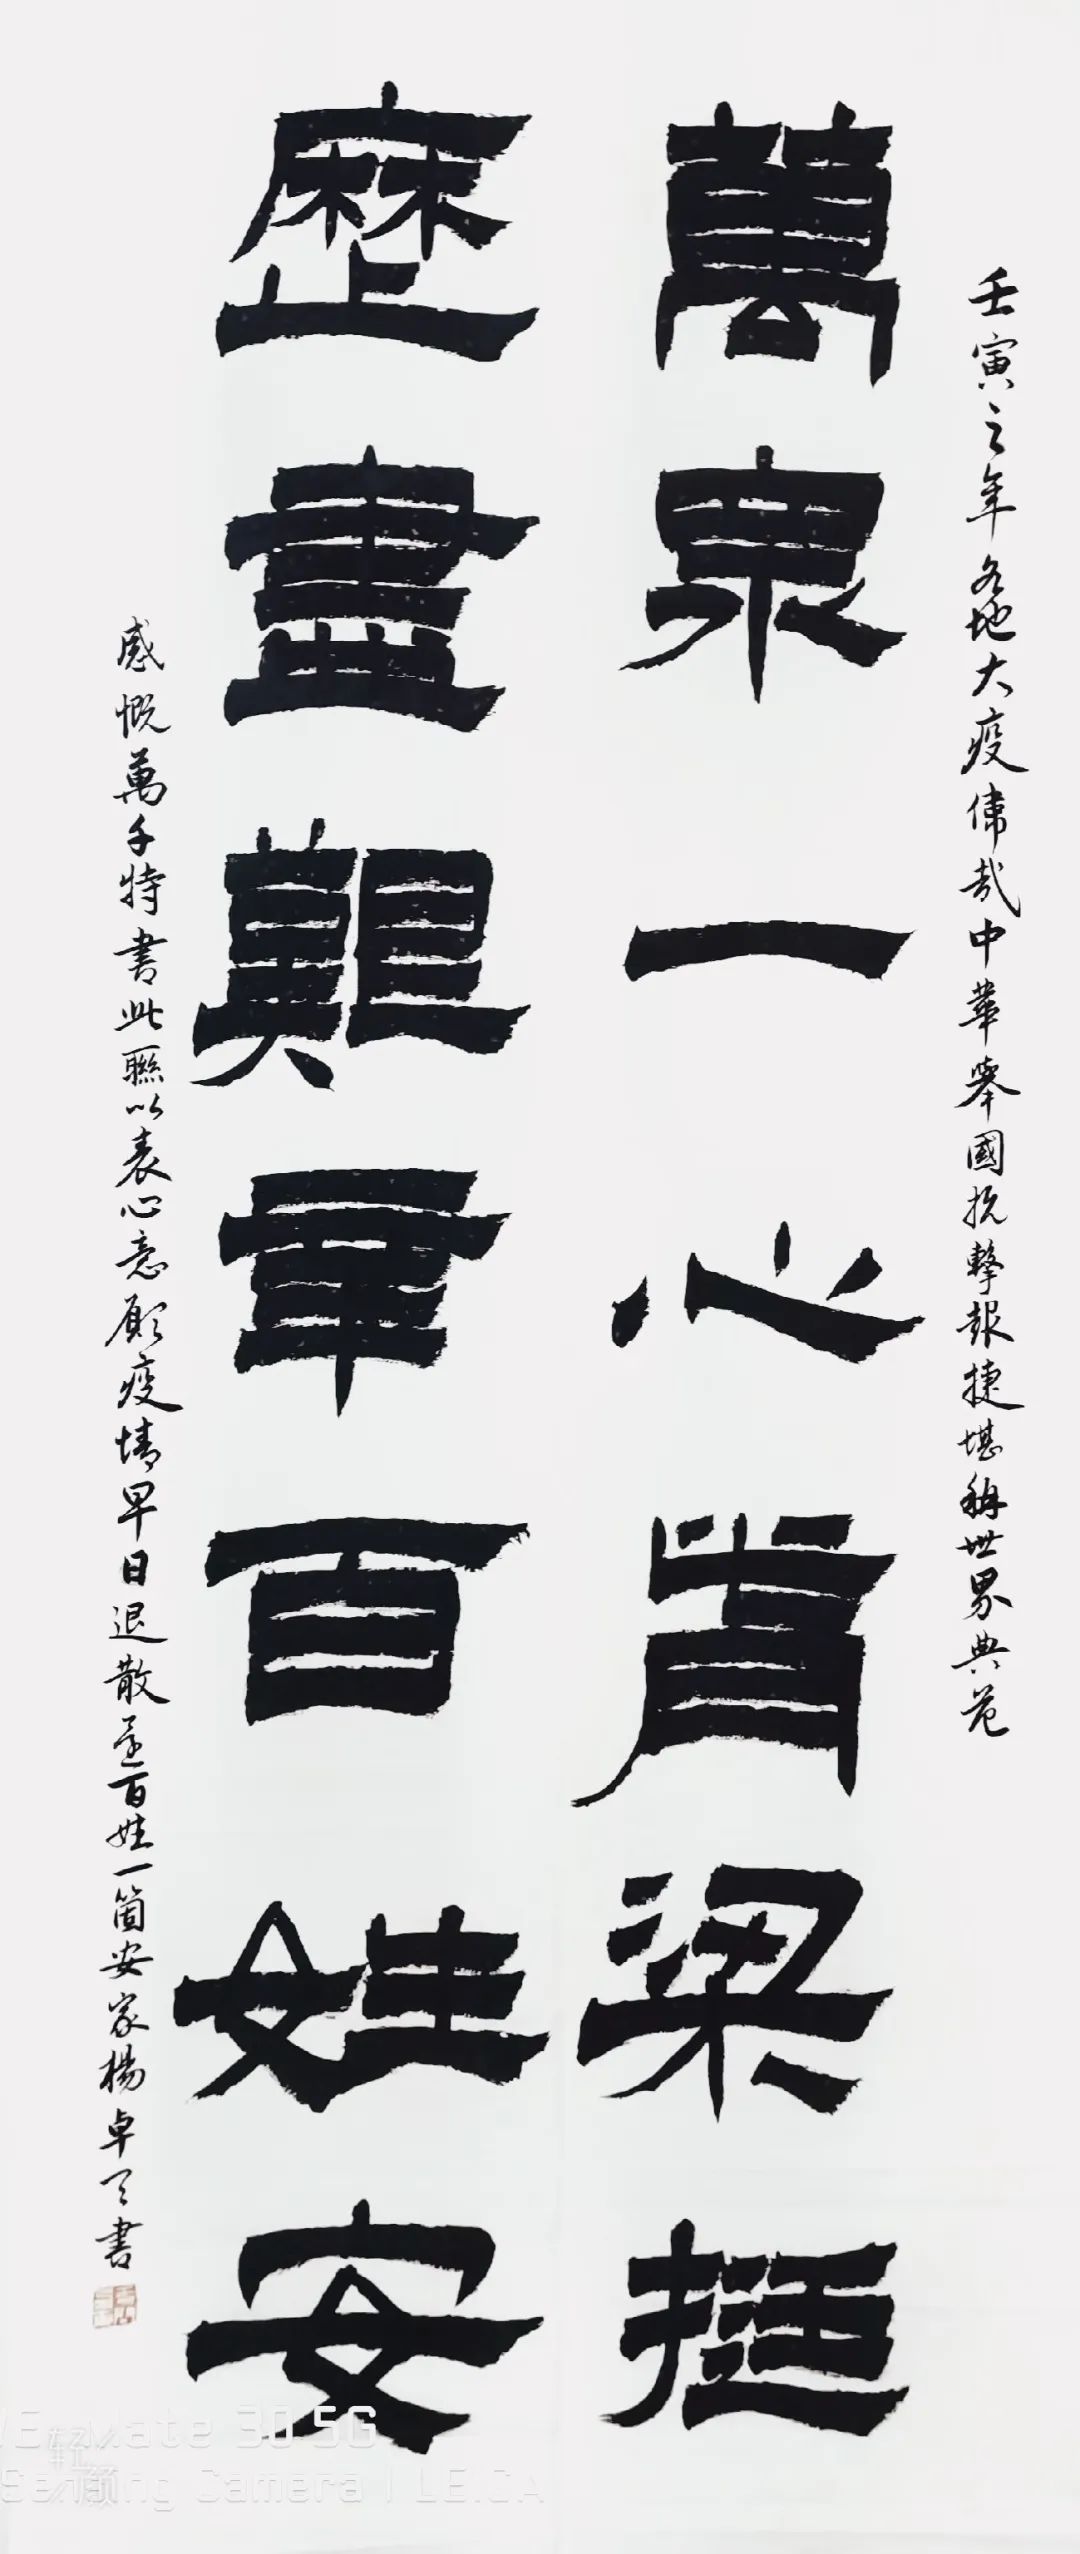 壬寅之年各地大疫偉哉中華舉國抗擊報捷堪稱世界典范
萬衆一心脊梁挺
歷盡艱辛百姓安
感慨萬千特書此聯以表心意願疫情早日退散還百姓一箇安家楊卓書
Mate 30 5G
Sensing Camera | LEICA
轻颜